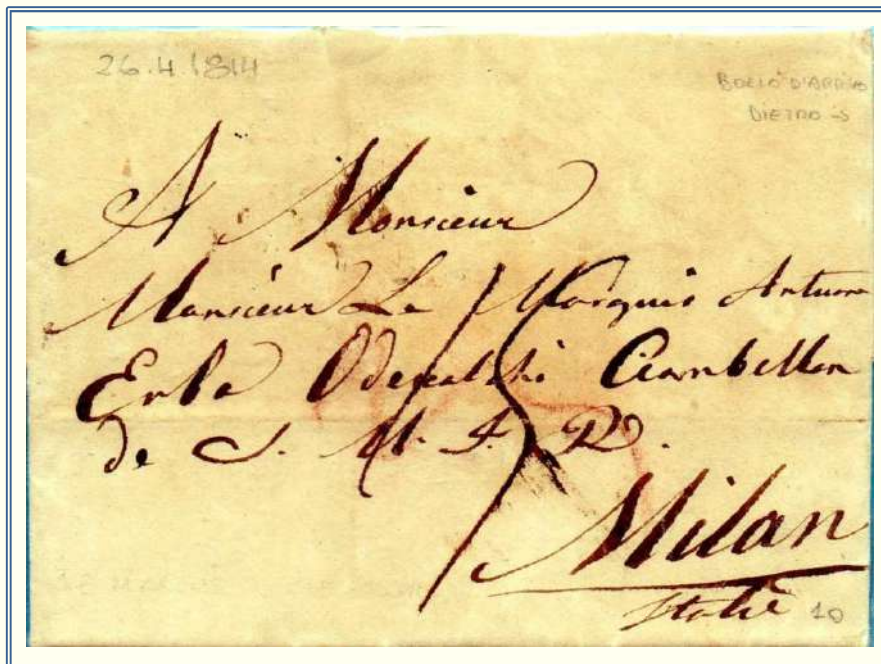 26.4.1814
BOLLO D'ARRIVO
DIETRO
A Monsieur
Monsieur Le Marquis Anturn
Erba Odescalchi Ciambellan
de S. M. I. R.
Milan
Italie
10